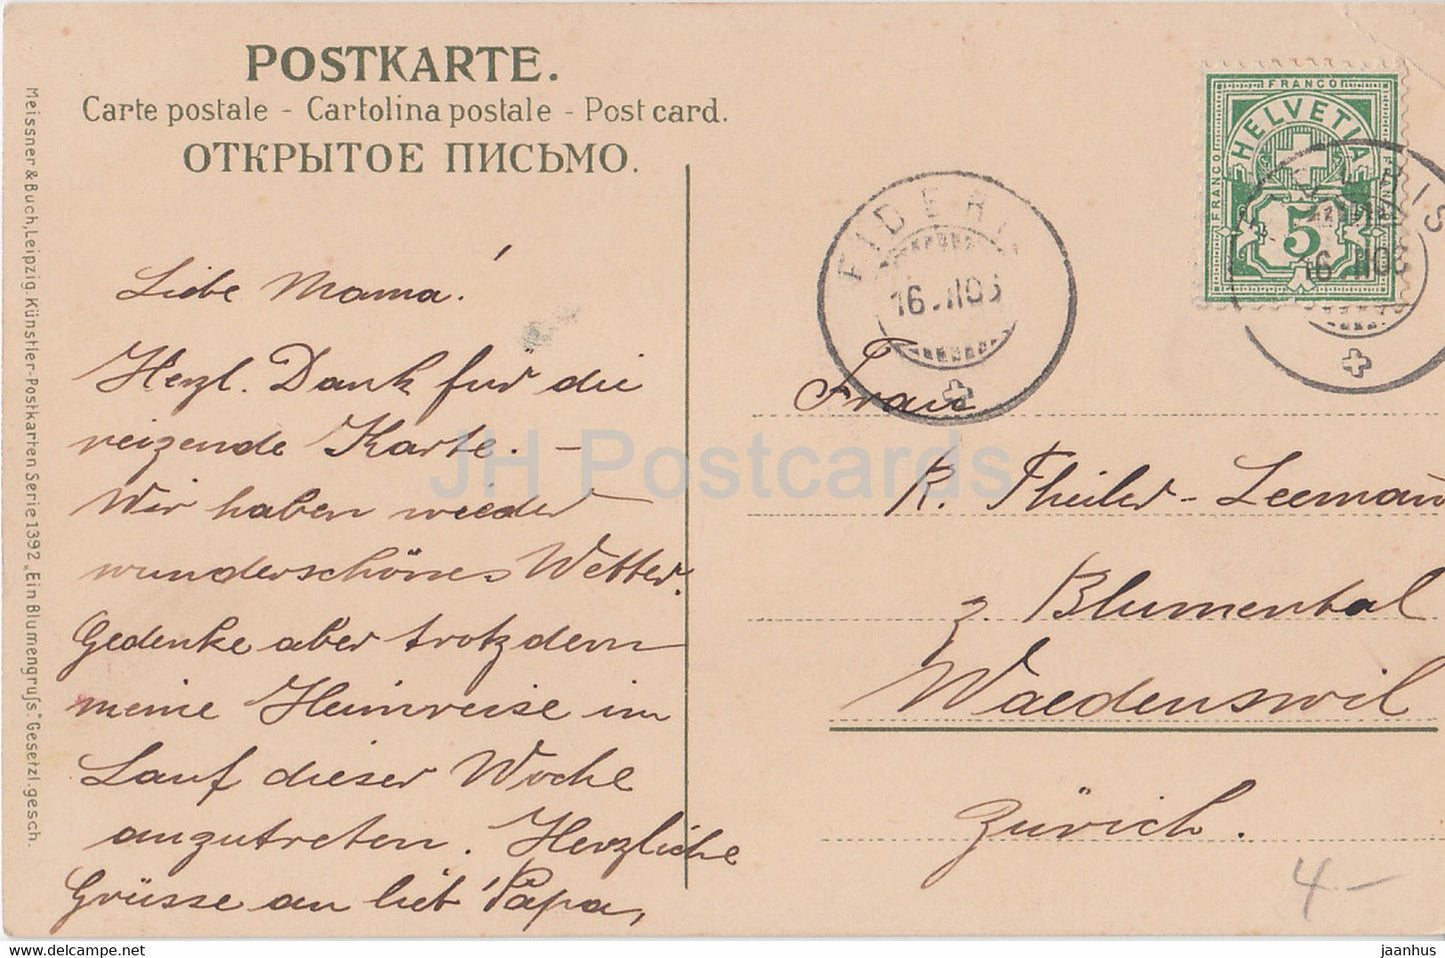 POSTKARTE.
Carte postale - Cartolina postale - Post card.
ОТКРЫТОЕ ПИСЬМО.
Meissner & Buch, Leipzig. Künstler-Postkarten Serie 1392 „Ein Blumengruſs." Gesetzl. gesch.
Liebe Mama!
Herzl. Dank für die
reizende Karte. –
Wir haben wieder
wunderschönes Wetter.
Gedenke aber trotzdem
meine Heimreise im
Lauf dieser Woche
anzutreten. Herzliche
Grüsse an lieb Papa,
FRANCO
FRANCO
HELVETIA
5
FIDERIS
16.II 06
16.II 06
Frau
R. Theiler-Leemann
z. Blumenthal
Waedenswil
Zürich.
4-
JH Postcards
https://www.delcampe.net
jaanhus